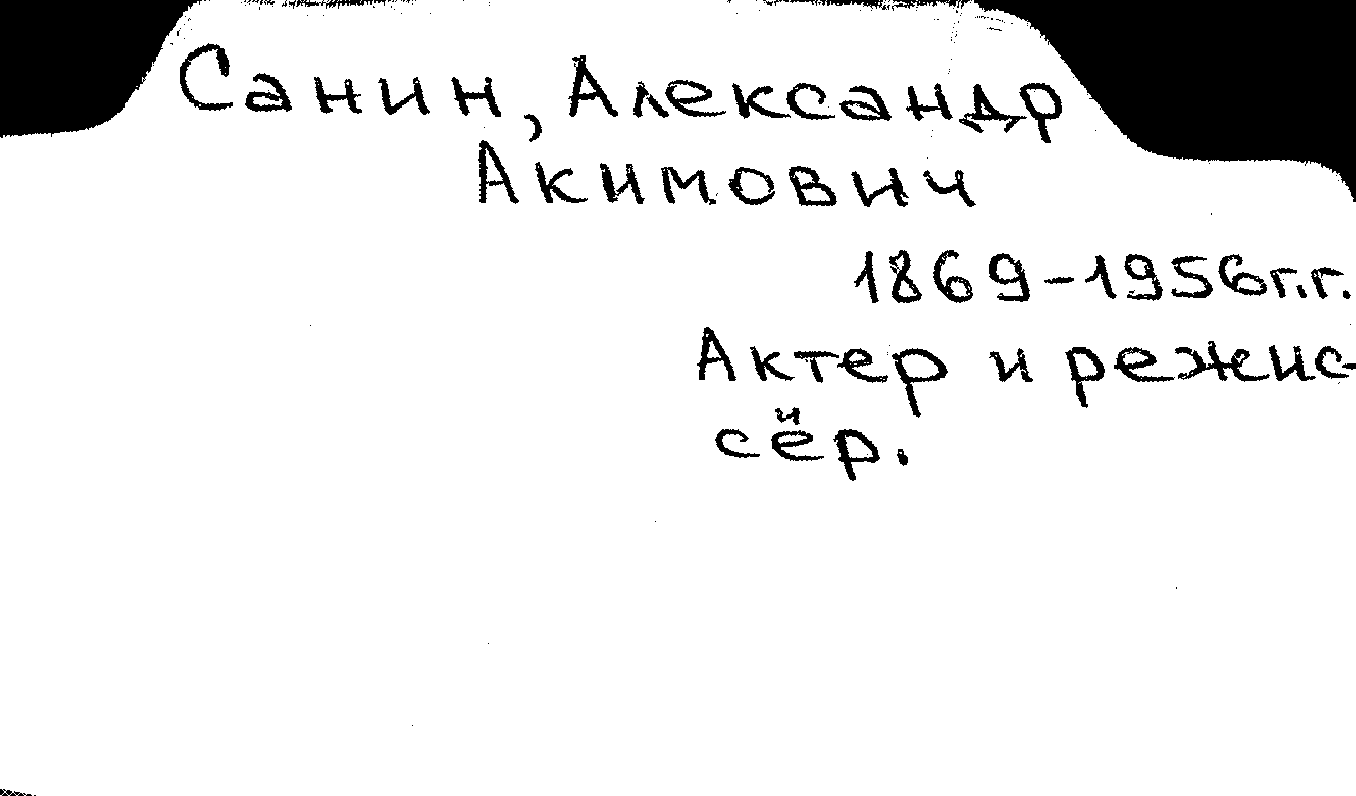 Санин, Александр
Акимович
1869-1956г.г.
Актер и режис-
сёр.